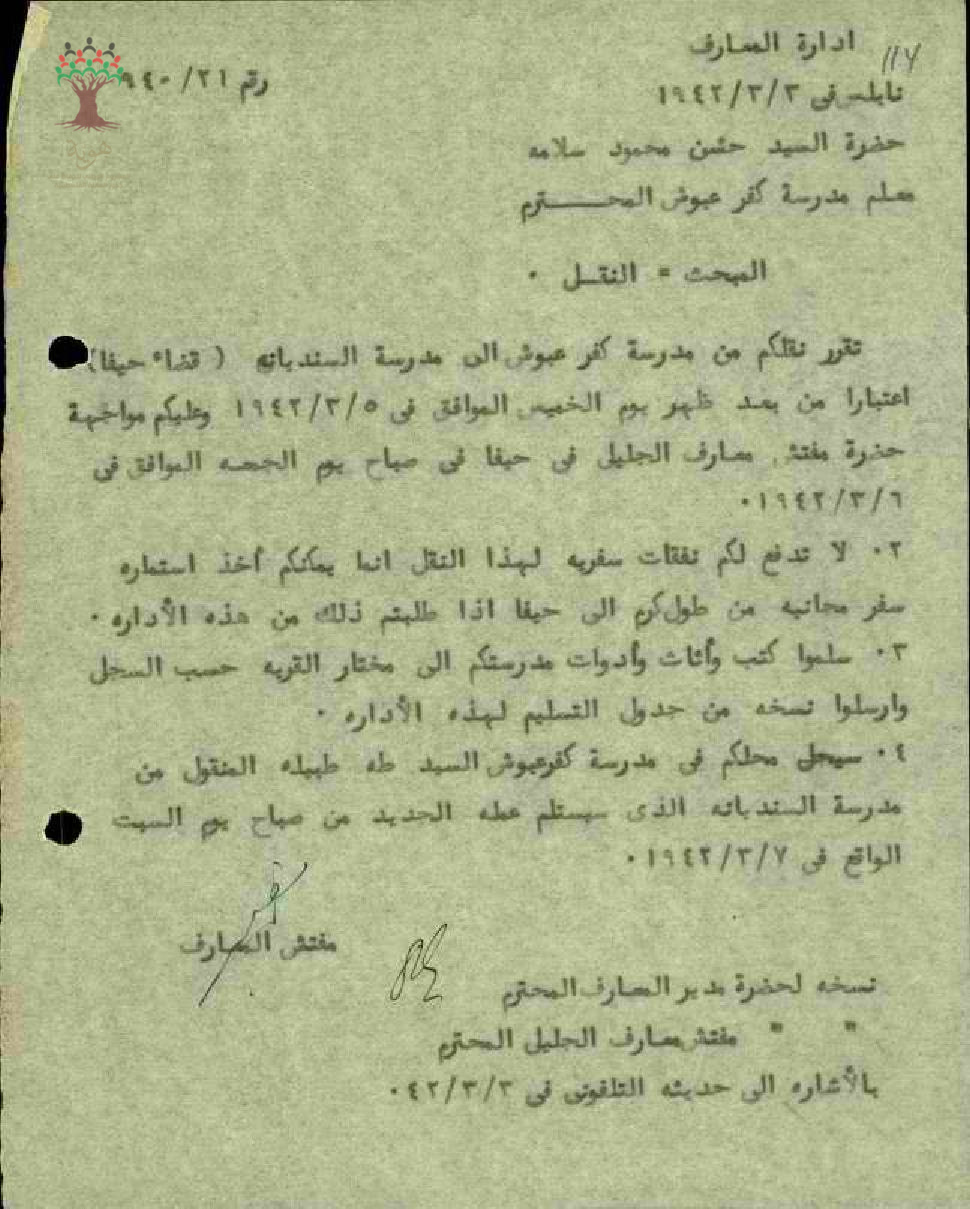 ادارة المعارف
١١٧
رقم ٢١/ ٩٤٠
نابلس فى ١٩٤٢/٣/٣
حضرة السيد حسن محمود سلامه
معلم مدرسة كفر عبوش المحـــــترم
المبحث = النقـل ٠
تقرر نقلكم من مدرسة كفر عبوش الى مدرسة السنديانه ( قضاء حيفا)
اعتبارا من بعـد ظهر يوم الخميس الموافق فى ١٩٤٢/٣/٥ وعليكم مواجهة
حضرة مفتش معـارف الجليل فى حيفا فى صباح يوم الجمعـه الموافق فى
١٩٤٢/٣/٦٠
٢٠ لا تدفع لكم نفقات سفريه لهذا النقل انما يمكنكم أخذ استماره
سفر مجانيه من طولكرم الى حيفا اذا طلبتم ذلك من هذه الأداره ٠
٣٠ سلموا كتب وأثاث وأدوات مدرستكم الى مختار القريه حسب السجل
وارسلوا نسخه من جدول التسليم لهذه الأداره ٠
٤٠ سيحل محلكم فى مدرسة كفرعبوش السيد طه طبيله المنقول من
مدرسة السنديانه الذى سيستلم عمله الجديد من صباح يوم السبت
الواقع فى ١٩٤٢/٣/٧٠
مفتش المعـارف
نسخه لحضرة مدير المعـارف المحترم
" " مفتش معـارف الجليل المحترم
بالأشاره الى حديثه التلفونى فى ٤٢/٣/٣٠